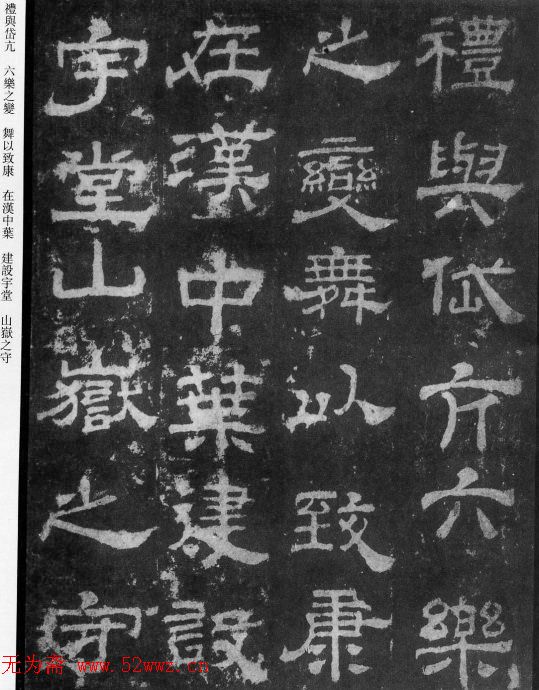 禮與岱亢 六樂之變 舞以致康 在漢中葉 建設宇堂 山嶽之守
禮與岱亢六樂
之變舞以致康
在漢中葉建設
宇堂山嶽之守
无为斋 www.52wwz.cn